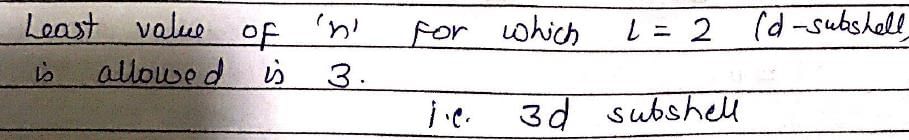 Least value of 'n' for which l = 2 (d-subshell)
is allowed is 3.
i.e. 3d subshell